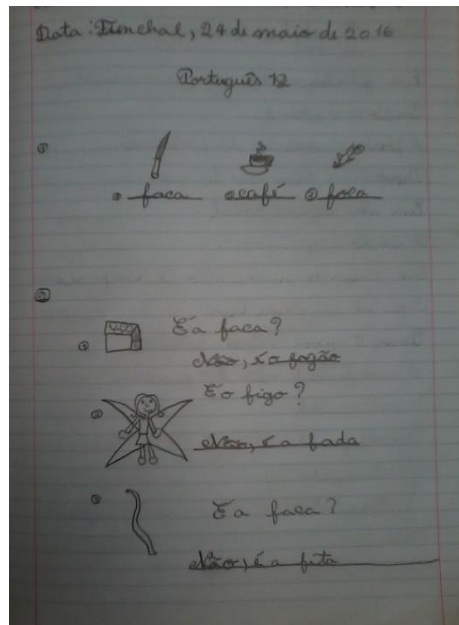 Data: Funchal, 24 de maio de 2016
Português 12
① faca ② café ③ foca
②
① É a faca?
Não, é o fogão
② É o figo?
Não, é a fada
③ É a faca?
Não, é a fita